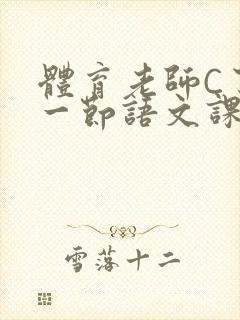 體育老師C
一節語文課
雪落十二